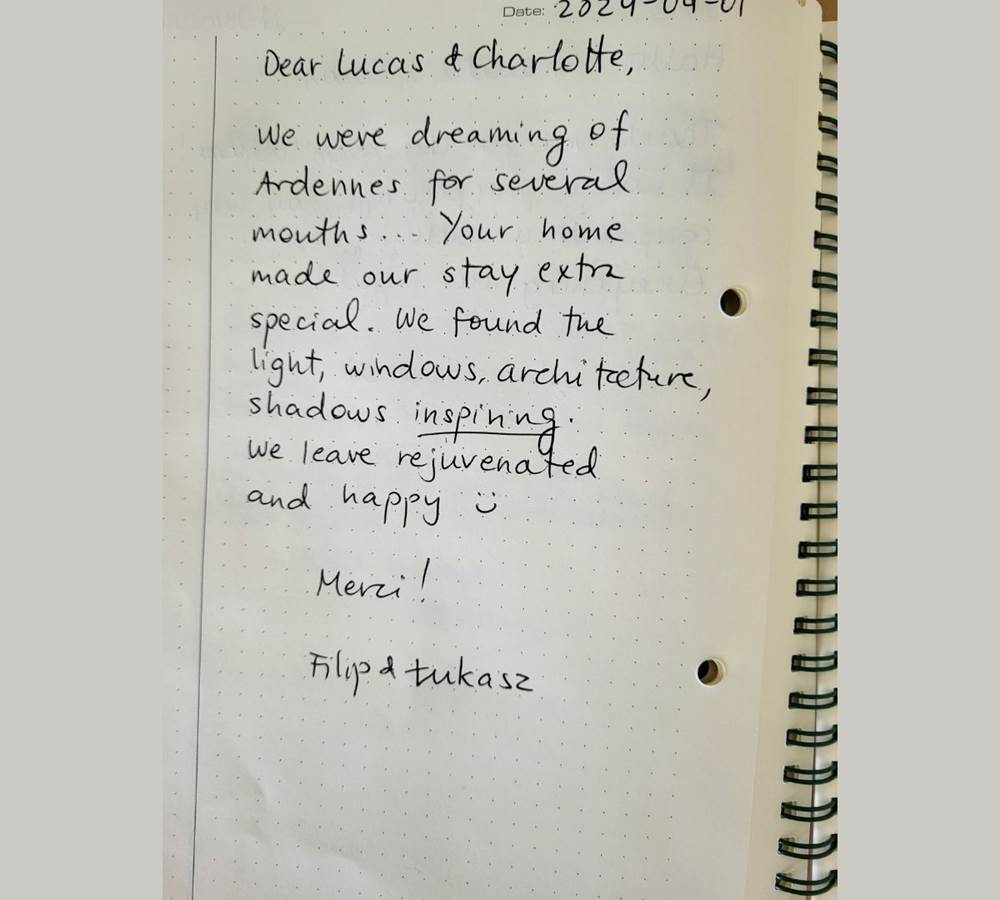 Date: 2024-04-01
Dear Lucas & Charlotte,
We were dreaming of
Ardennes for several
months... Your home
made our stay extra
special. We found the
light, windows, architecture,
shadows inspiring.
We leave rejuvenated
and happy ☺
Merci!
Filip & Łukasz